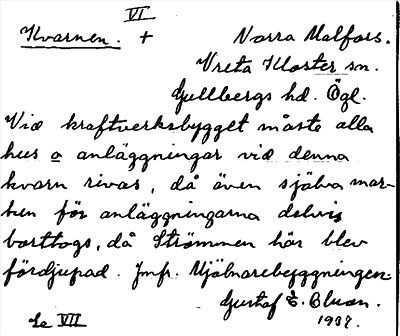 VI
Kvarnen. +
Norra Malfors.
Vreta Kloster sn.
Gullbergs hd. Ögl.
Vid kraftverksbygget måste alla
hus o anläggningar vid denna
kvarn rivas, då även själva mar-
ken för anläggningarna delvis
borttogs, då Strömmen här blev
fördjupad. Jmf. Mjölnarebyggningen.
Gustaf E. Bluon.
Se VII 1937.